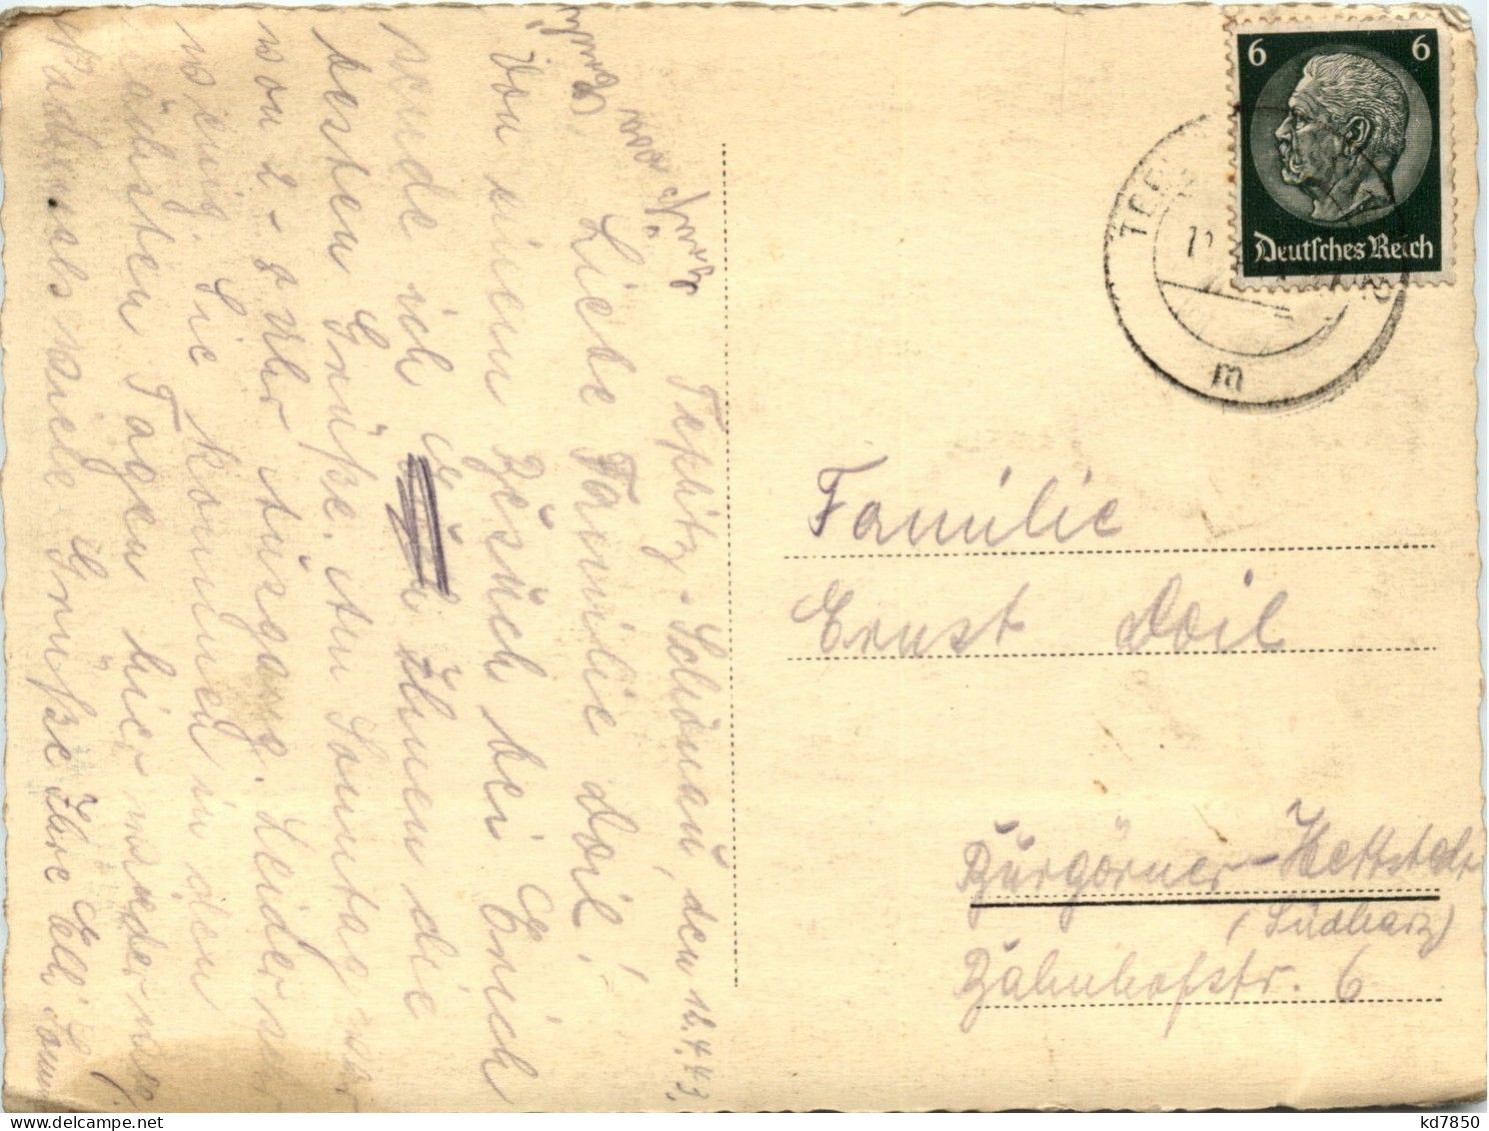 Teplitz-Schönau, den 12.4.43.
Liebe Familie Doil!
Von einem Besuch bei Erich
sende ich Ihnen die
besten Grüße. Am Sonntag war
von 2-8 Uhr Ausgang. Leider sehr
wenig. Sie kommen in den
nächsten Tagen hier wieder weg.
Nochmals viele Grüße Ihre Elli
6
6
Deutsches Reich
m
Familie
Ernst Doil
Burgörner-Hettstedt
(Südharz)
Bahnhofstr. 6
kd7850